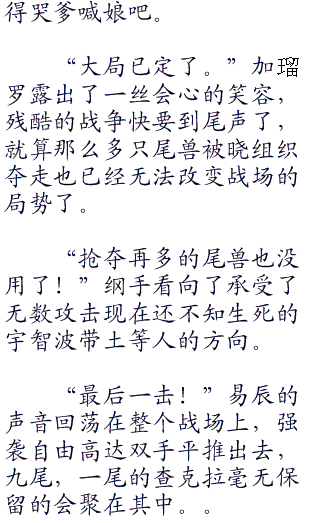 得哭爹喊娘吧。
“大局已定了。”加瑠
罗露出了一丝会心的笑容，
残酷的战争快要到尾声了，
就算那么多只尾兽被晓组织
夺走也已经无法改变战场的
局势了。
“抢夺再多的尾兽也没
用了！”纲手看向了承受了
无数攻击现在还不知生死的
宇智波带土等人的方向。
“最后一击！”易辰的
声音回荡在整个战场上，强
袭自由高达双手平推出去，
九尾，一尾的查克拉毫无保
留的会聚在其中。。